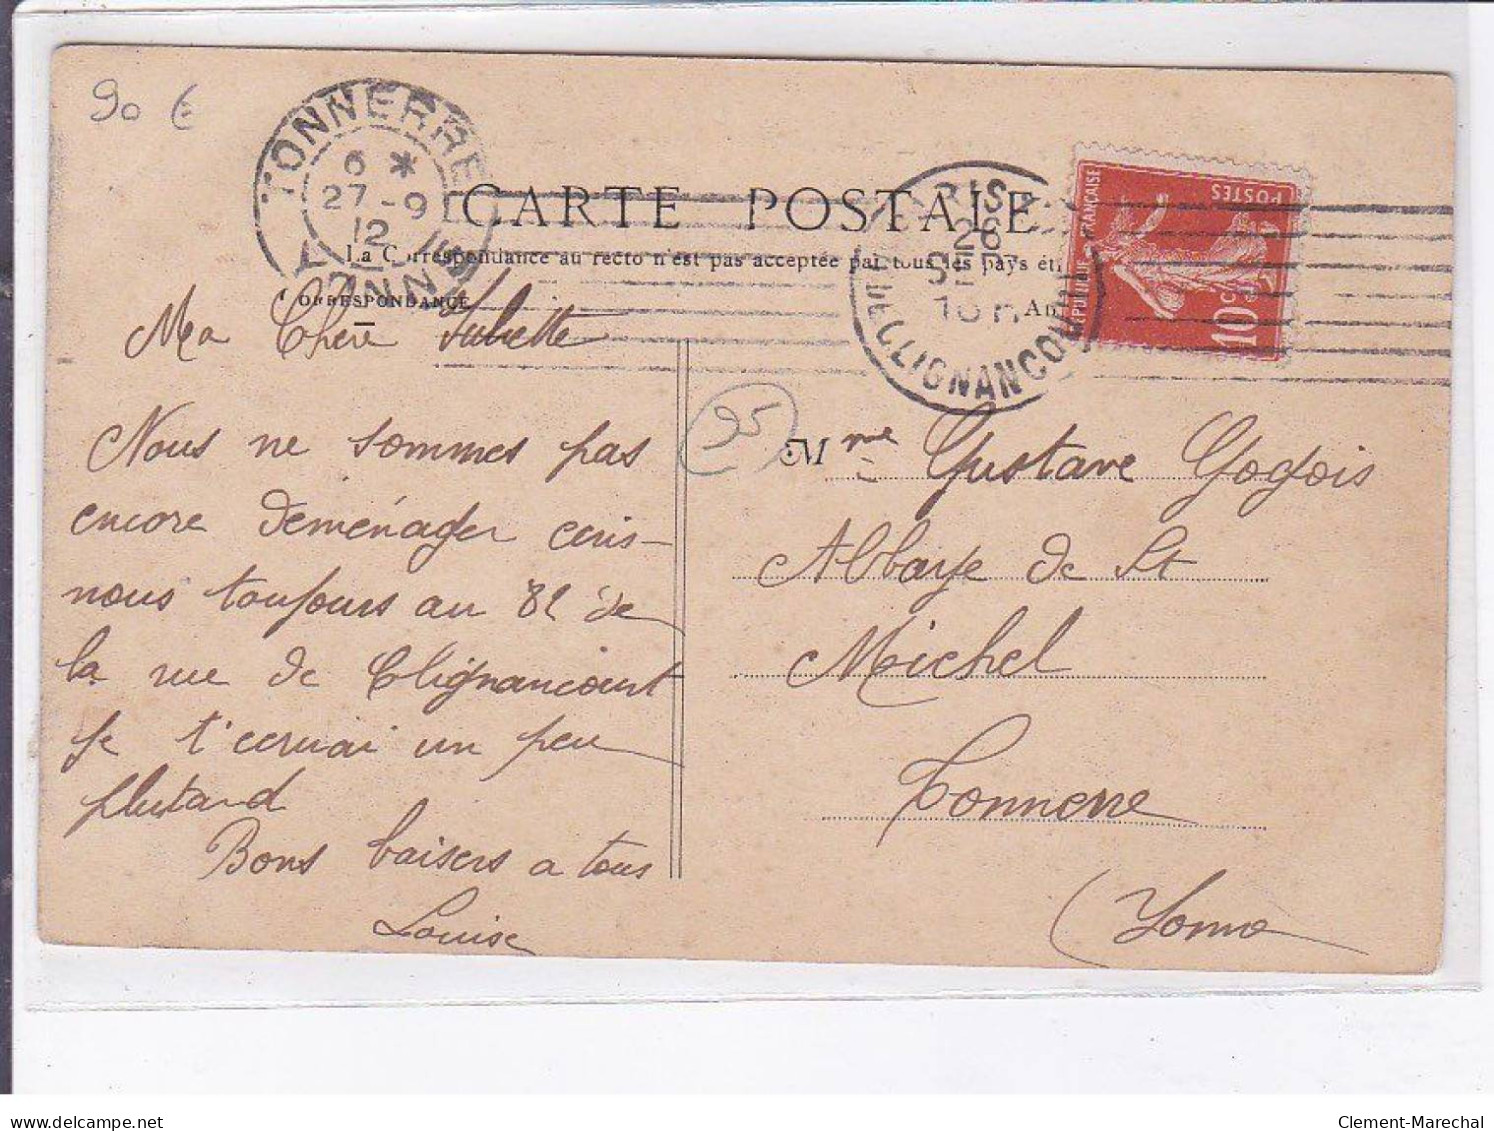 90 €
TONNERRE
6 *
27 - 9
12
YONNE
CARTE POSTALE
La Correspondance au recto n'est pas acceptée par tous les pays ét
CORRESPONDANCE
PARIS
26
SEPT
RUE DE CLIGNANCOURT
RÉPUBLIQUE FRANÇAISE
POSTES
10 C
Ma Chère Juliette
Nous ne sommes pas
encore déménager ecris-
nous toujours au 82 de
la rue de Clignancourt
Je t'ecriuai un peu
plutard
Bons baisers a tous
Louise
95
Mme Gustave Gogois
Abbaye de St
Michel
Tonnerre
(Yonne
Clement-Marechal
delcampe.net